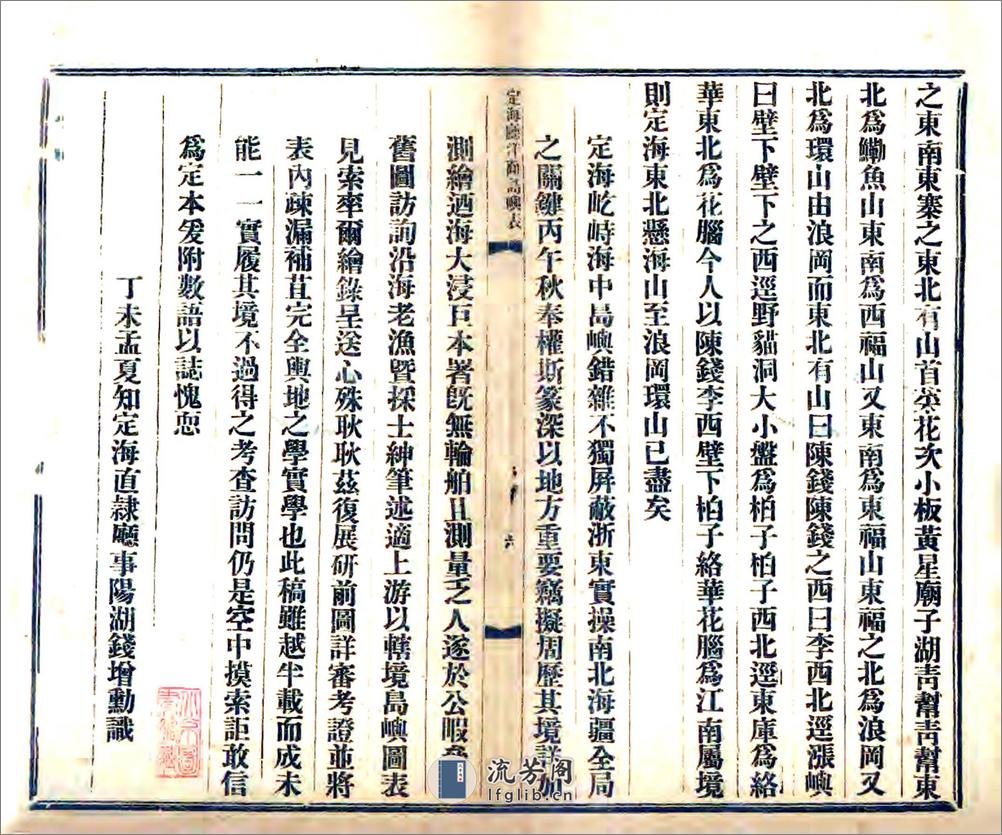 之東南東寨之東北有山首菜花次小板黃星廟子湖靑幫靑幫東
北爲鰳魚山東南爲西福山又東南爲東福山東福之北爲浪岡又
北爲環山由浪岡而東北有山曰陳錢陳錢之西曰李西北逕漲嶼
曰壁下壁下之西逕野貓洞大小盤爲柏子柏子西北逕東庫爲絡
華東北爲花腦今人以陳錢李西壁下柏子絡華花腦爲江南屬境
則定海東北懸海山至浪岡環山已盡矣
定海屹峙海中島嶼錯雜不獨屏蔽浙東實操南北海疆全局
之關鍵丙午秋奉權斯篆深以地方重要竊擬周歷其境詳加
定海廳洋面島嶼表
六
測繪迺海大浸巨本署旣無輪舶且測量乏人遂於公暇
舊圖訪詢沿海老漁曁採士紳筆述適上游以轄境島嶼圖表
見索率爾繪錄呈送心殊耿耿茲復展硏前圖詳審考證並將
表內疎漏補苴完全輿地之學實學也此稿雖越半載而成未
能一一實履其境不過得之考查訪問仍是空中摸索詎敢信
爲定本爰附數語以誌愧恧
丁未孟夏知定海直隸廳事陽湖錢增勳識
流芳阁
lfglib.cn